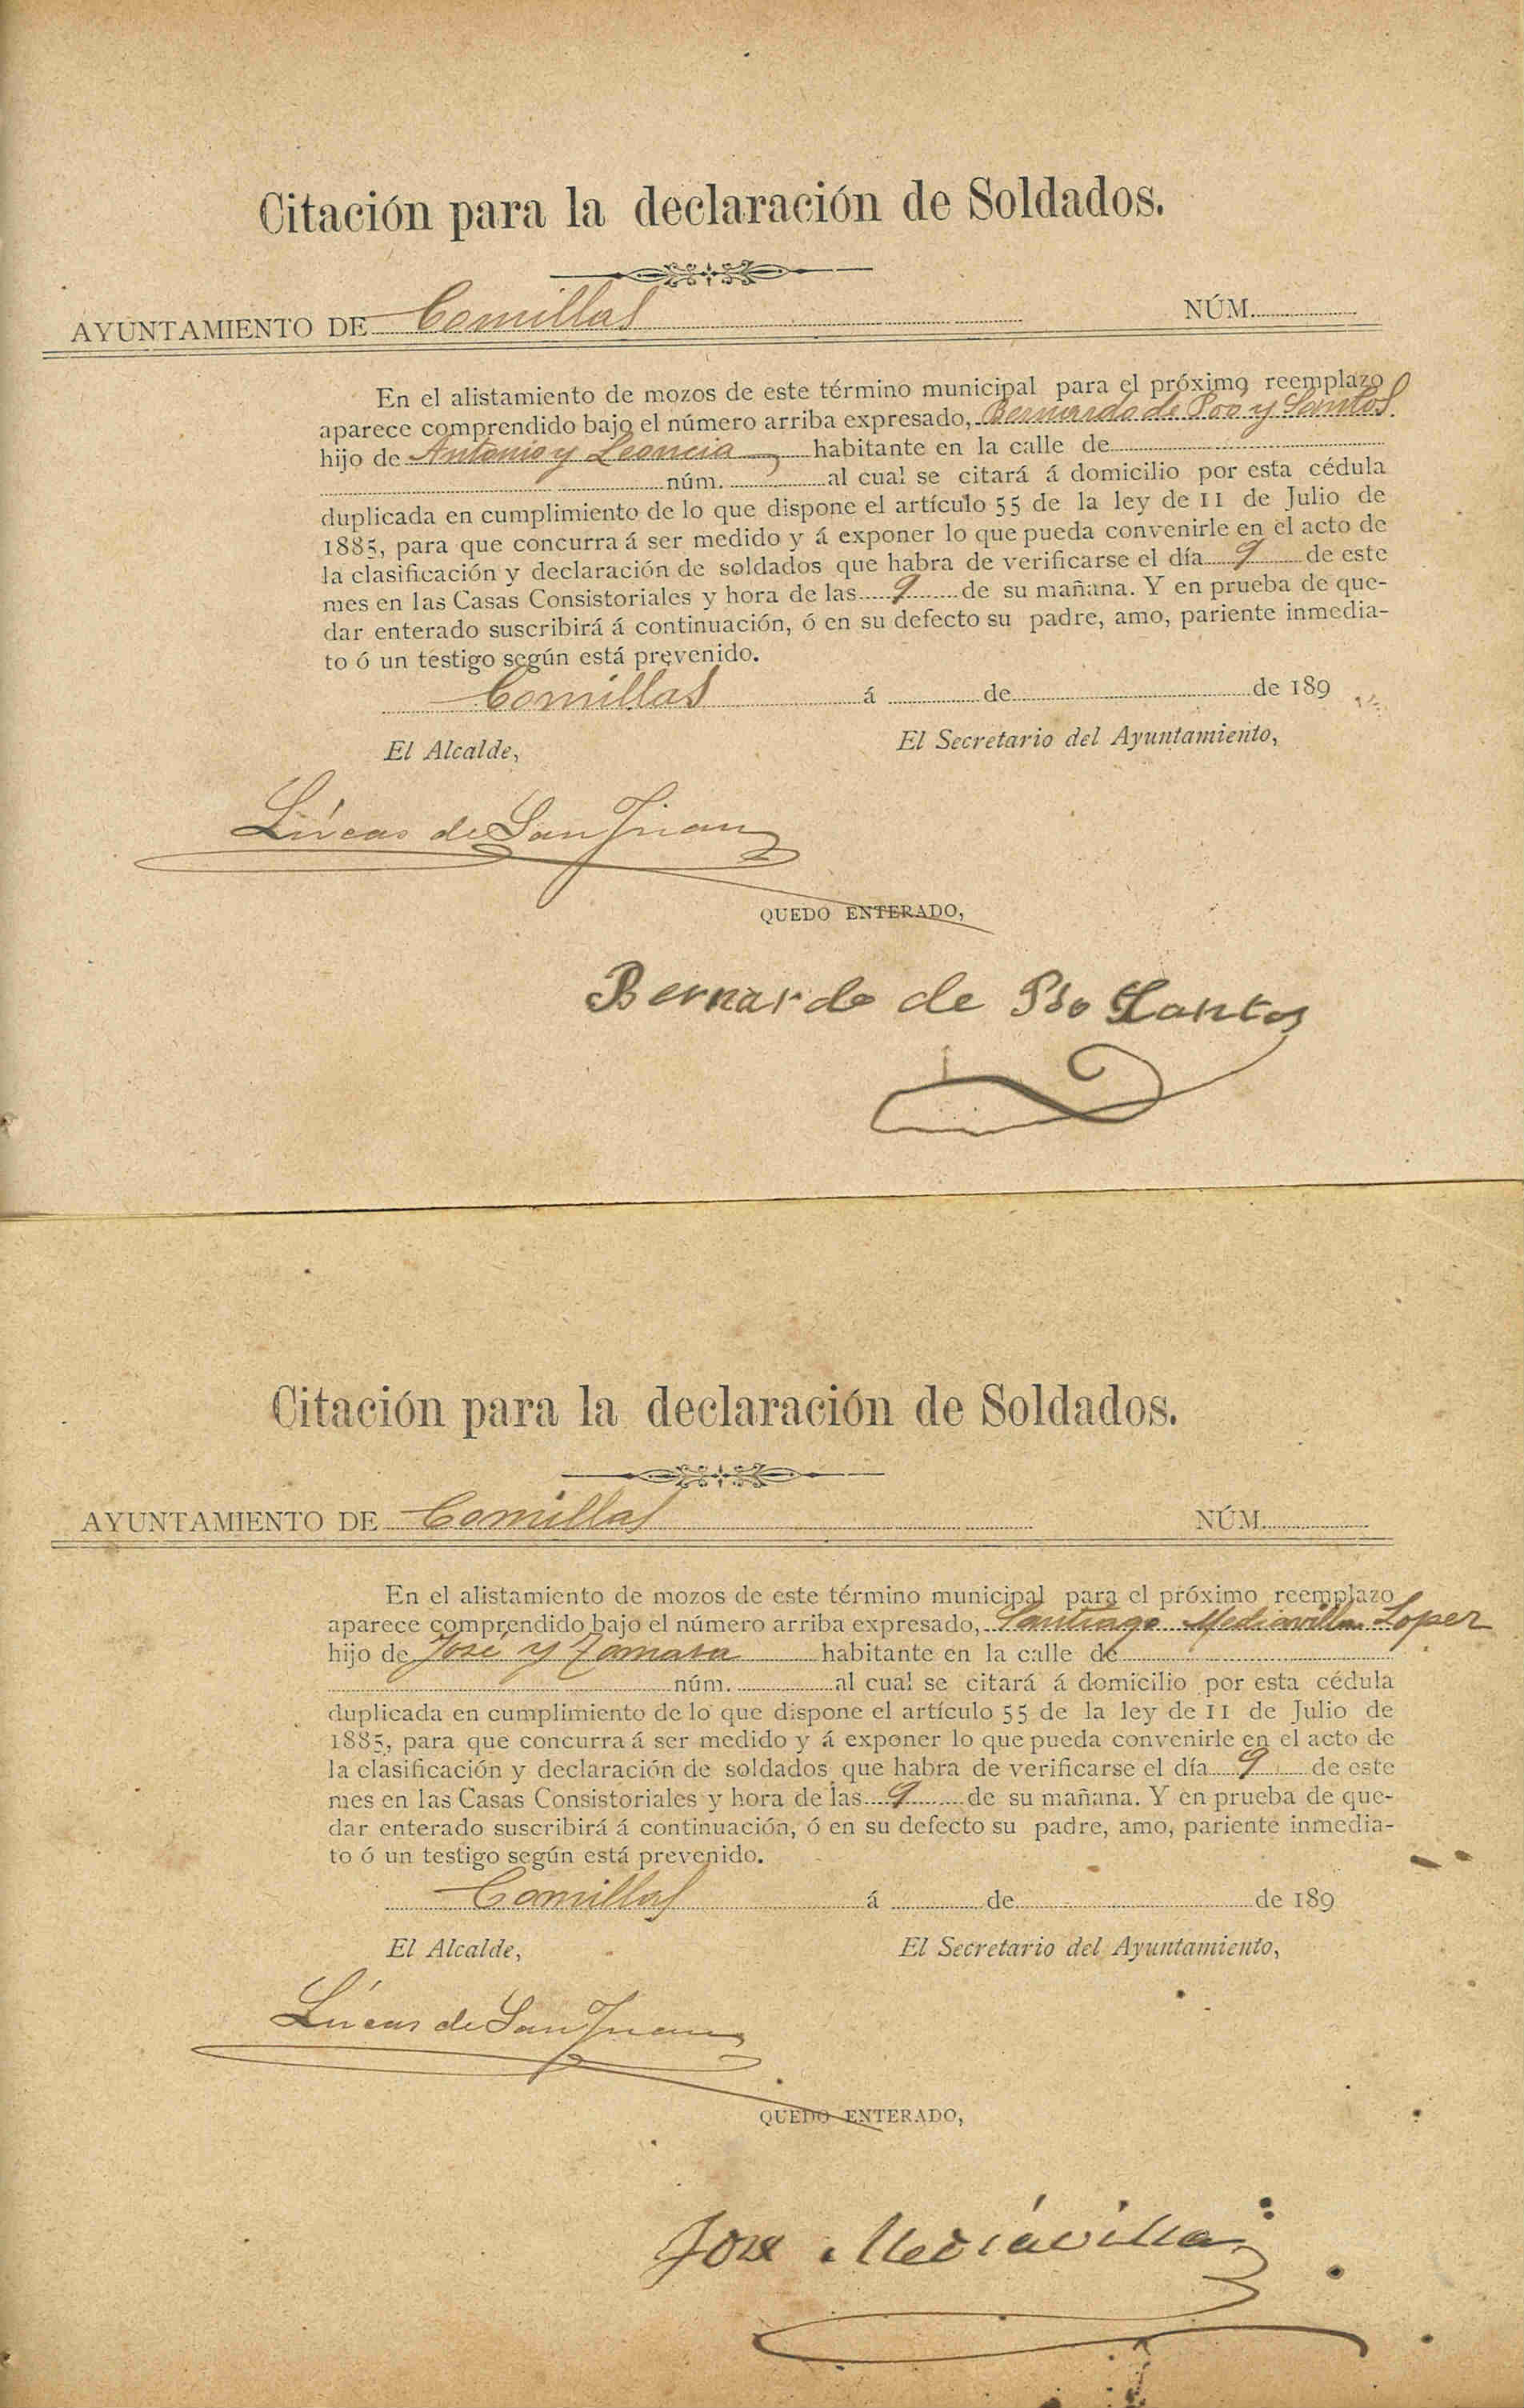 Citación para la declaración de Soldados.
AYUNTAMIENTO DE Comillas NÚM.
En el alistamiento de mozos de este término municipal para el próximo reemplazo
aparece comprendido bajo el número arriba expresado, Bernardo de Poo y Santos
hijo de Antonio y Leoncia habitante en la calle de
núm. al cual se citará á domicilio por esta cédula
duplicada en cumplimiento de lo que dispone el artículo 55 de la ley de 11 de Julio de
1885, para que concurra á ser medido y á exponer lo que pueda convenirle en el acto de
la clasificación y declaración de soldados que habra de verificarse el día 9 de este
mes en las Casas Consistoriales y hora de las 9 de su mañana. Y en prueba de que-
dar enterado suscribirá á continuación, ó en su defecto su padre, amo, pariente inmedia-
to ó un testigo según está prevenido.
Comillas á de de 189
El Alcalde, El Secretario del Ayuntamiento,
Lúcas de San Juan
QUEDO ENTERADO,
Bernardo de Poo Santos
Citación para la declaración de Soldados.
AYUNTAMIENTO DE Comillas NÚM.
En el alistamiento de mozos de este término municipal para el próximo reemplazo
aparece comprendido bajo el número arriba expresado, Santiago Mediavilla Loper
hijo de José y Tamara habitante en la calle de
núm. al cual se citará á domicilio por esta cédula
duplicada en cumplimiento de lo que dispone el artículo 55 de la ley de 11 de Julio de
1885, para que concurra á ser medido y á exponer lo que pueda convenirle en el acto de
la clasificación y declaración de soldados que habra de verificarse el día 9 de este
mes en las Casas Consistoriales y hora de las 9 de su mañana. Y en prueba de que-
dar enterado suscribirá á continuación, ó en su defecto su padre, amo, pariente inmedia-
to ó un testigo según está prevenido.
Comillas á de de 189
El Alcalde, El Secretario del Ayuntamiento,
Lúcas de San Juan
QUEDO ENTERADO,
Jose Mediavilla